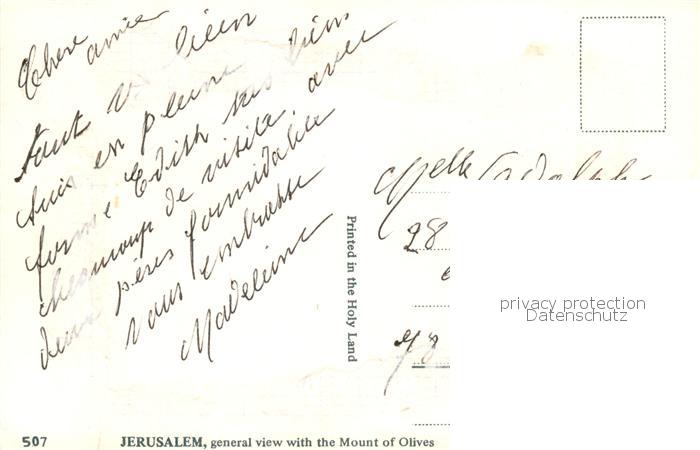 Chère amie
tout va bien
suis en pleine
forme Edith très bien
beaucoup de visite avec
deux pères formidables
vous embrasse
Madeleine
Printed in the Holy Land
Melle
28
78
privacy protection
Datenschutz
507 JERUSALEM, general view with the Mount of Olives